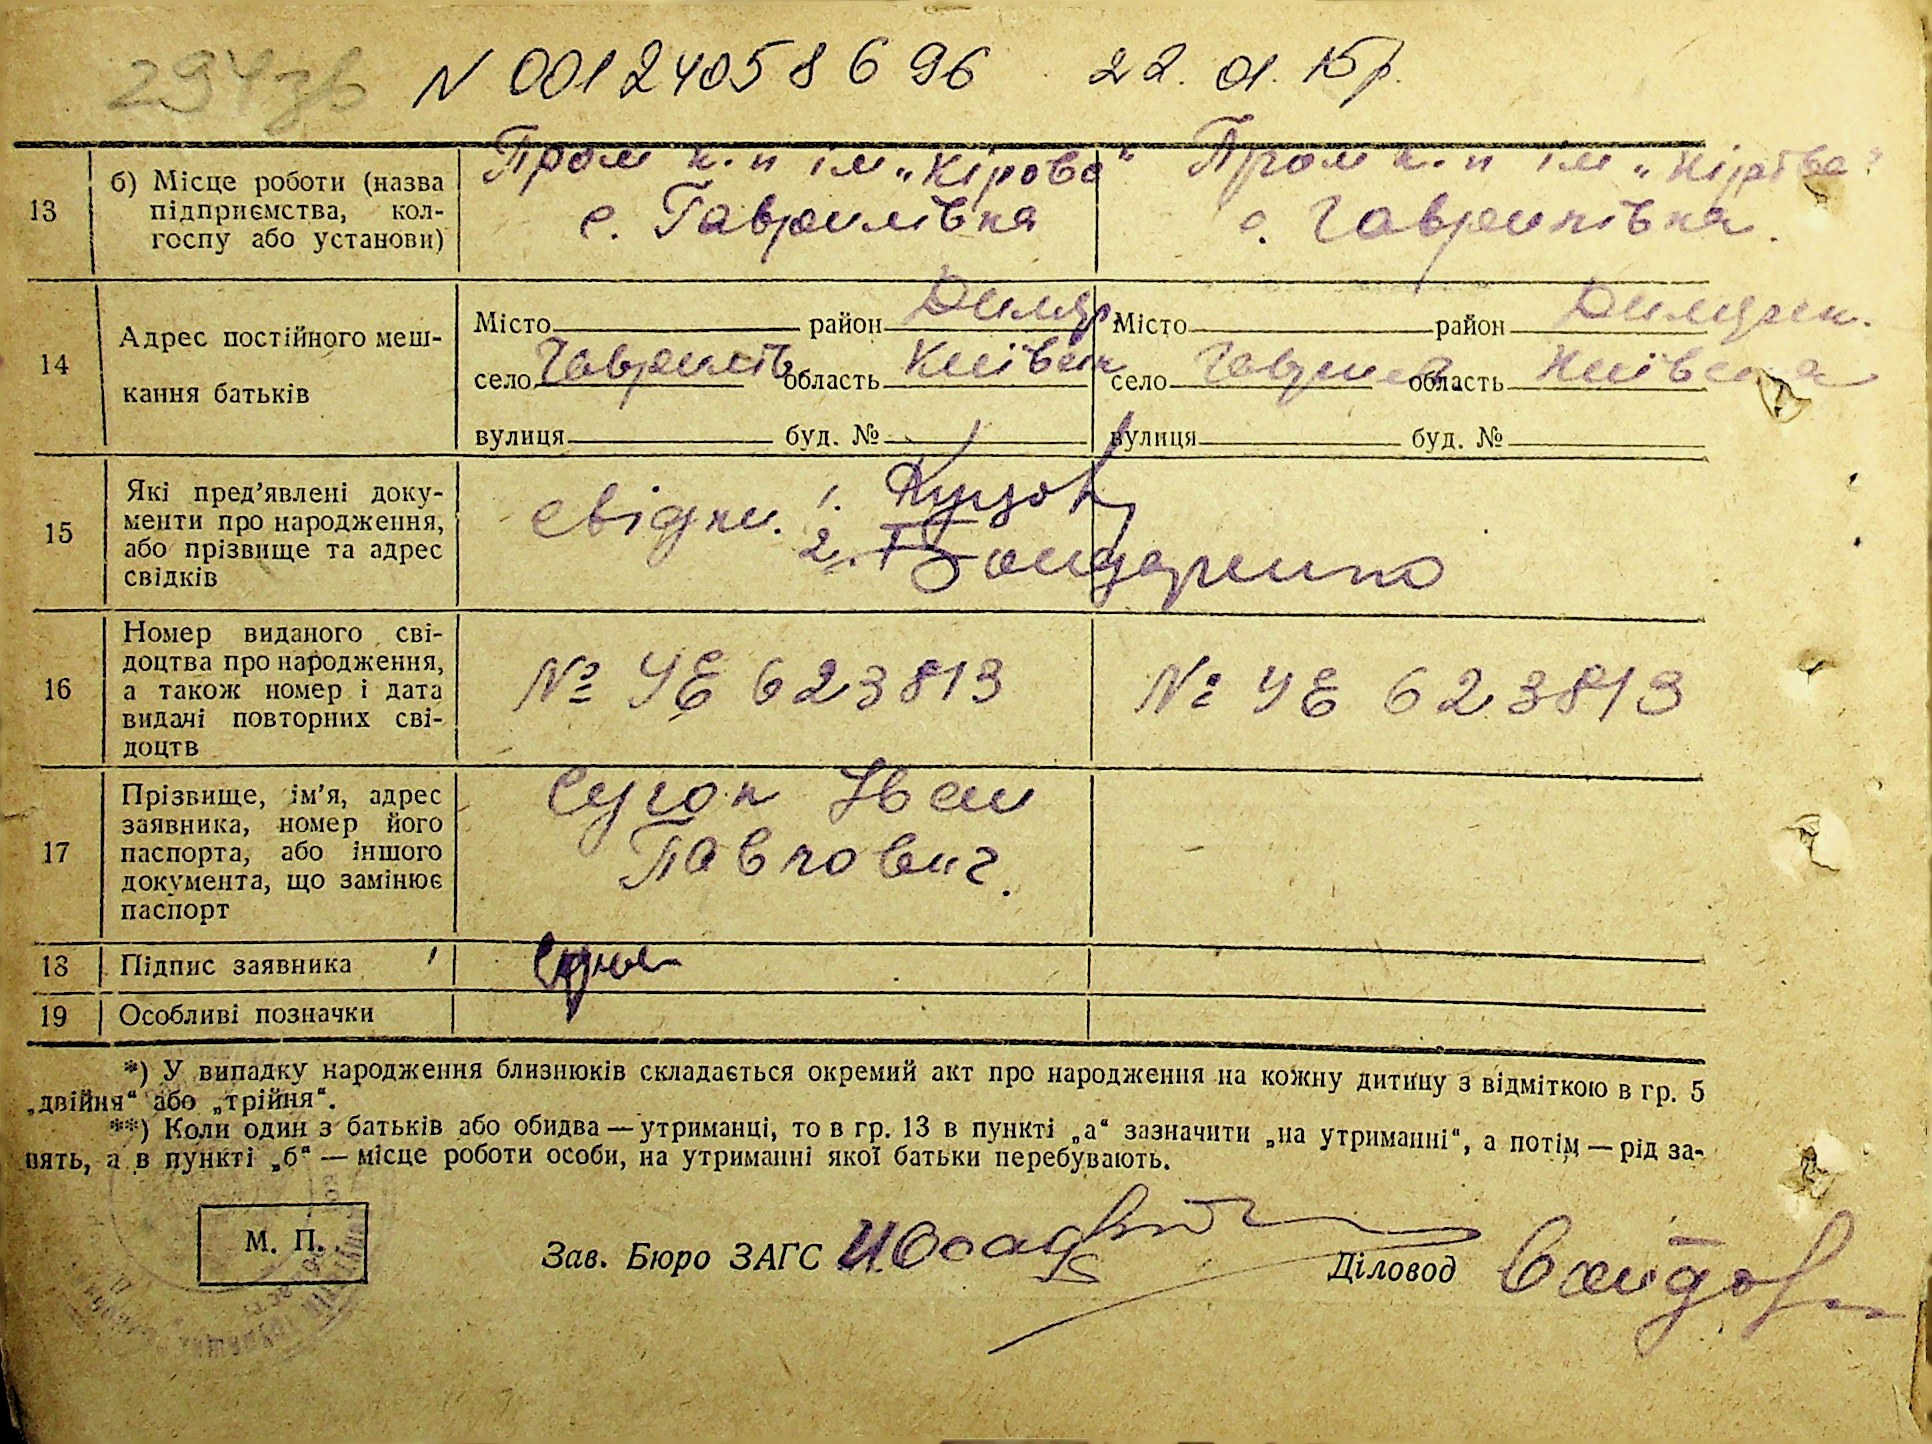 294зв
N 00124058696 22.01.15р.
13
б) Місце роботи (назва
підприємства, кол-
госпу або установи)
Пром к.п ім „Кірова“
с. Гаврилівка
Пром к.п ім „Кірова“
с. Гаврилівка.
14
Адрес постійного меш-
кання батьків
Місто район Димер
село Гаврилів область Київськ
вулиця буд. №
Місто район Димерськ.
село Гаврил область Київська
вулиця буд. №
15
Які пред’явлені доку-
менти про народження,
або прізвище та адрес
свідків
свідки. 1.
2. Бондаренко
16
Номер виданого сві-
доцтва про народження,
а також номер і дата
видачі повторних сві-
доцтв
№ УЕ 623813
№ УЕ 623813
17
Прізвище, ім’я, адрес
заявника, номер його
паспорта, або іншого
документа, що замінює
паспорт
Іван
Павлович.
18
Підпис заявника
19
Особливі позначки
*) У випадку народження близнюків складається окремий акт про народження на кожну дитину з відміткою в гр. 5
„двійня“ або „трійня“.
**) Коли один з батьків або обидва — утриманці, то в гр. 13 в пункті „а“ зазначити „на утриманні“, а потім — рід за-
нять, а в пункті „б“ — місце роботи особи, на утриманні якої батьки перебувають.
М. П.
Зав. Бюро ЗАГС
Діловод